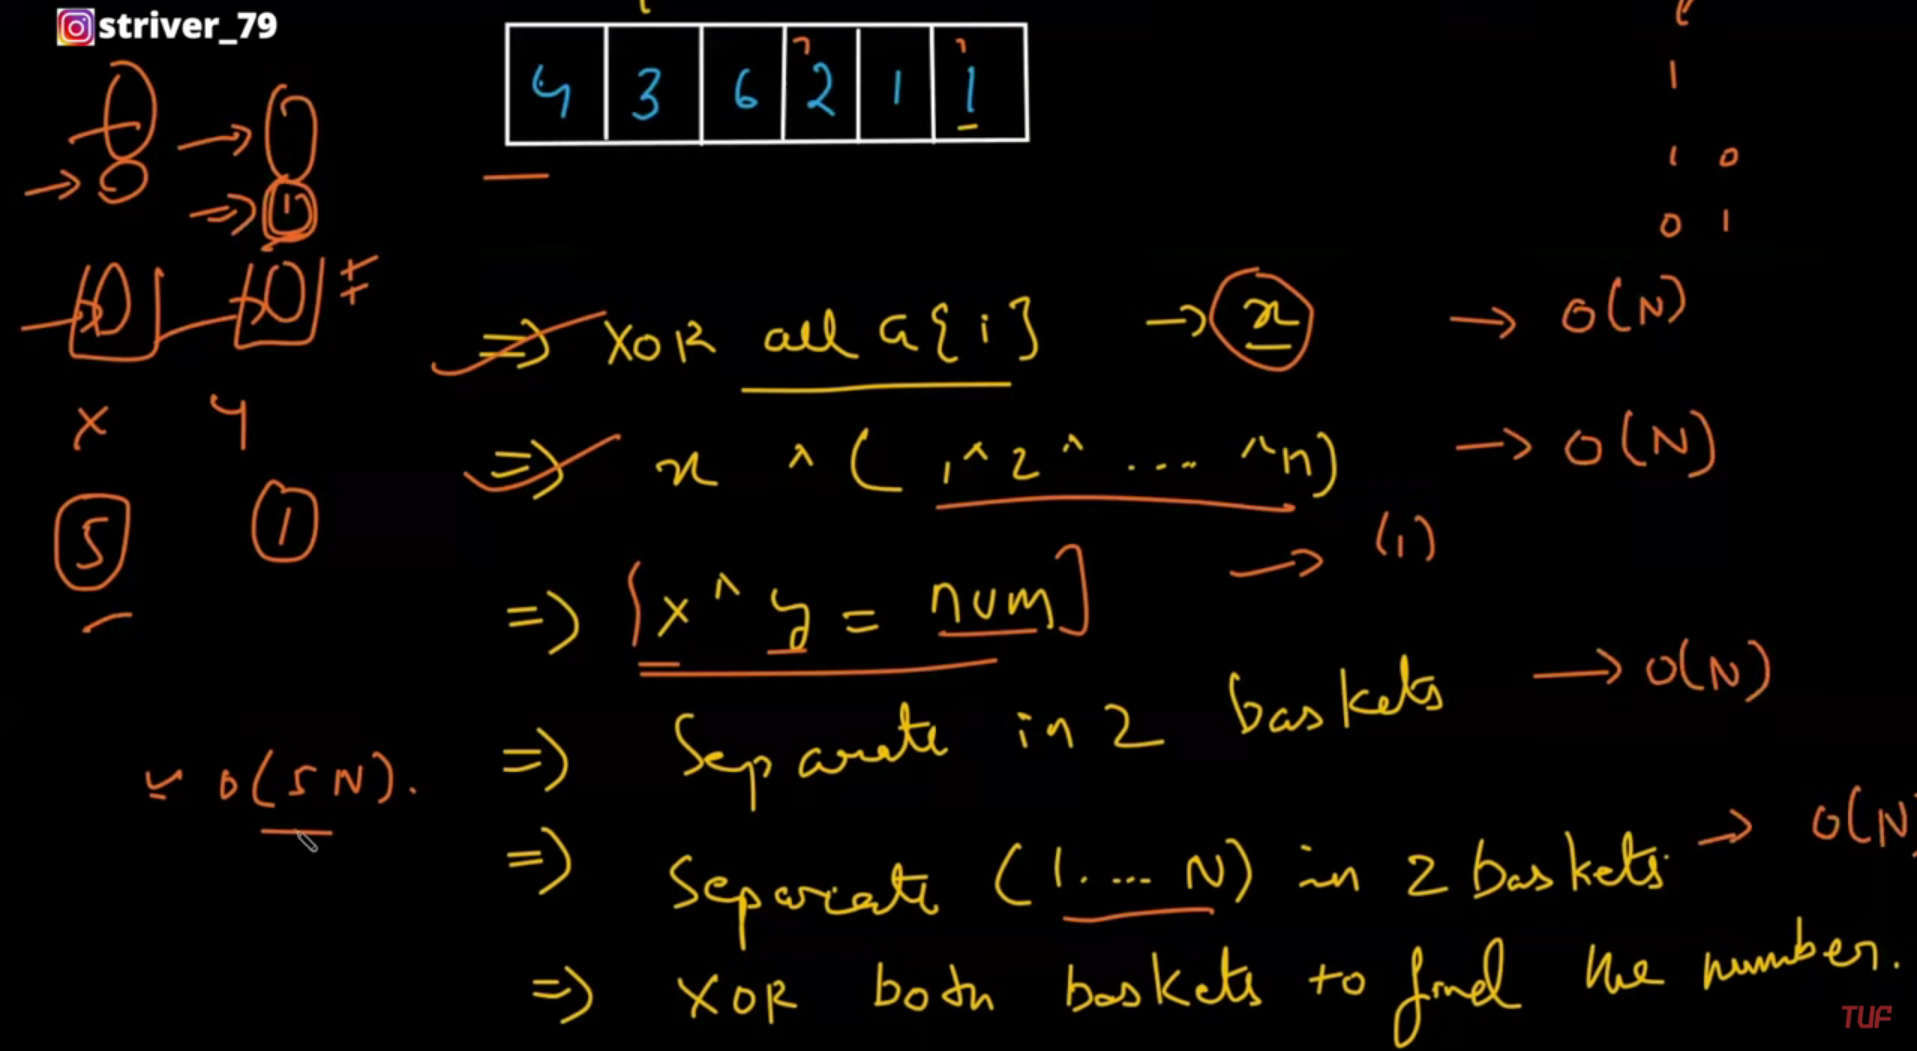 striver_79
4 3 6 2 1 1
1
1 0
0 1
=> XOR all a{i} → x → O(N)
=> x ^ (1^2^....^n) → O(N)
x y
5 1
=> [x^y = num] → (1)
=> Separate in 2 baskets → O(N)
O(5N).
=> Separate (1.... N) in 2 baskets. → O(N)
=> XOR both baskets to find the number.
TUF